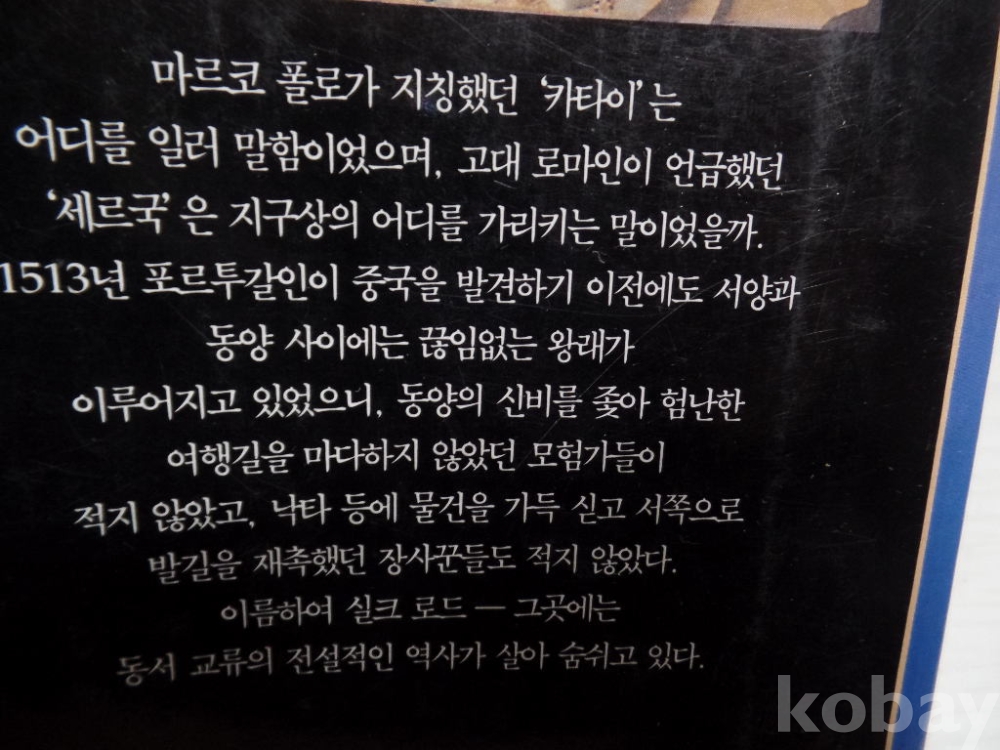 마르코 폴로가 지칭했던 '카타이'는
어디를 일러 말함이었으며, 고대 로마인이 언급했던
'세르국'은 지구상의 어디를 가리키는 말이었을까.
1513년 포르투갈인이 중국을 발견하기 이전에도 서양과
동양 사이에는 끊임없는 왕래가
이루어지고 있었으니, 동양의 신비를 좇아 험난한
여행길을 마다하지 않았던 모험가들이
적지 않았고, 낙타 등에 물건을 가득 싣고 서쪽으로
발길을 재촉했던 장사꾼들도 적지 않았다.
이름하여 실크 로드 — 그곳에는
동서 교류의 전설적인 역사가 살아 숨쉬고 있다.
kobay